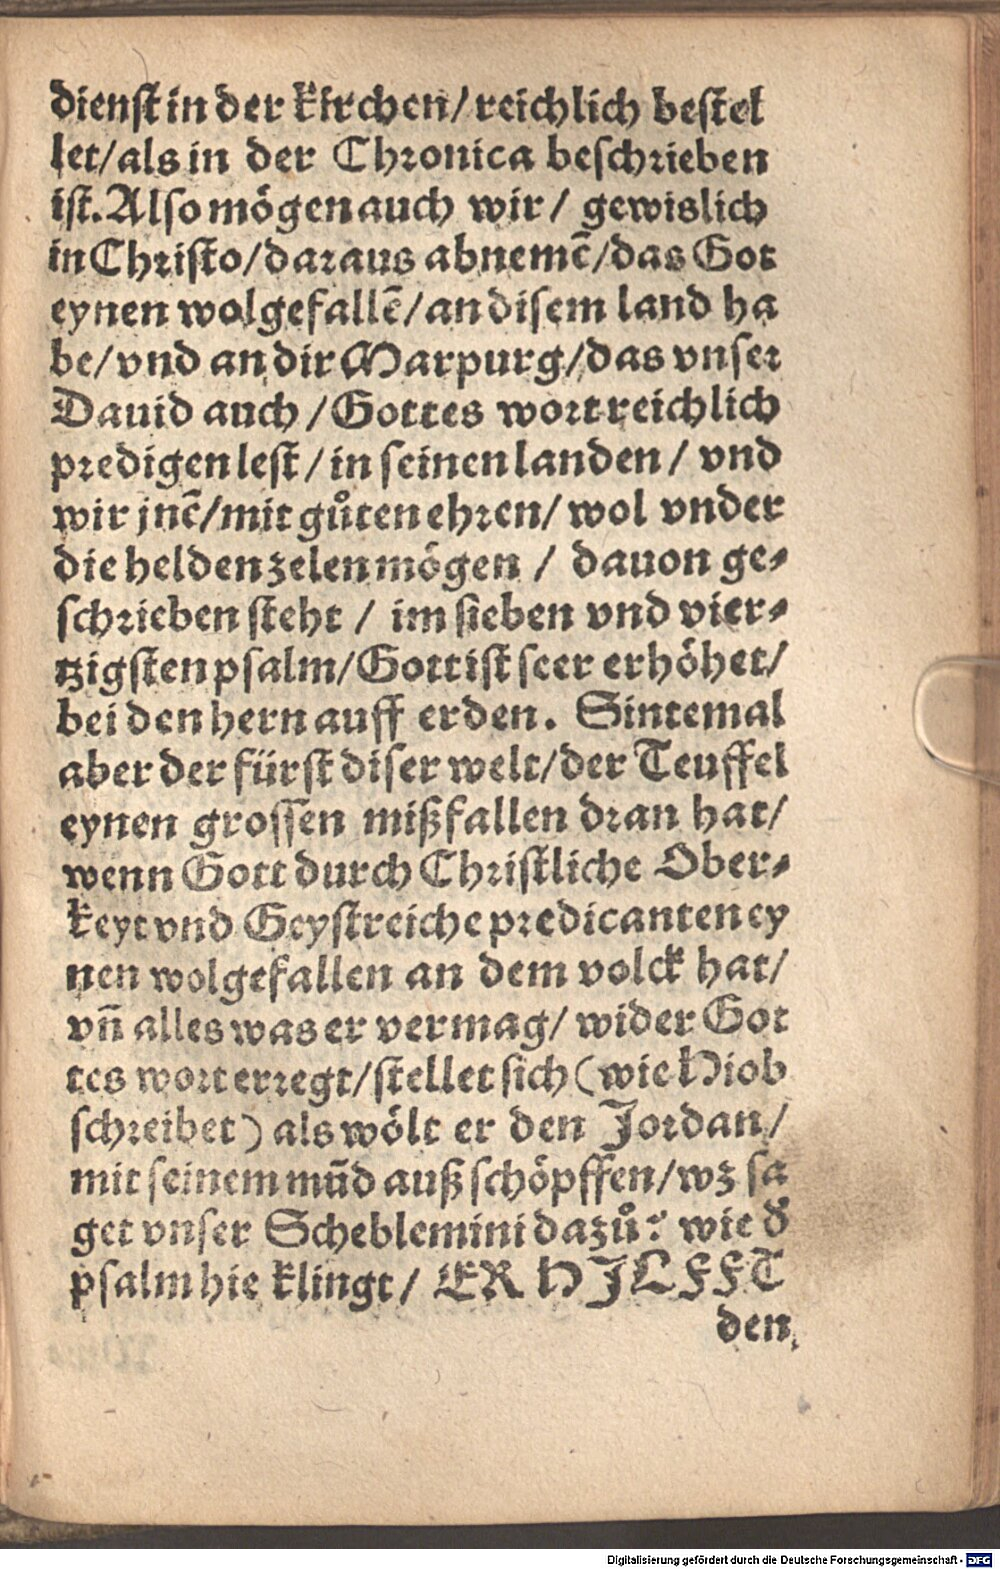 dienst in der kirchen/ reichlich bestel
let/ als in der Chronica beschrieben
ist. Also mögen auch wir / gewislich
in Christo/ daraus abnemē/ das Got
eynen wolgefallē/ an disem land ha
be/ vnd an dir Marpurg/ das vnser
Dauid auch / Gottes wort reichlich
predigen lest / in seinen landen / vnd
wir jnē/ mit gůten ehren/ wol vnder
die helden zelen mögen / dauon ge⸗
schrieben steht / im sieben vnd vier⸗
tzigsten psalm/ Gott ist seer erhöhet/
bei den hern auff erden. Sintemal
aber der fürst diser welt/ der Teuffel
eynen grossen mißfallen dran hat/
wenn Gott durch Christliche Ober⸗
keyt vnd Geystreiche predicanten ey
nen wolgefallen an dem volck hat/
vñ alles was er vermag/ wider Got
tes wort erregt/ stellet sich (wie Hiob
schreibet) als wölt er den Jordan/
mit seinem mūd auß schöpffen/ wz sa
get vnser Scheblemini dazů? wie d̕
psalm hie klingt/ ER HILFFT
den
Digitalisierung gefördert durch die Deutsche Forschungsgemeinschaft - DFG